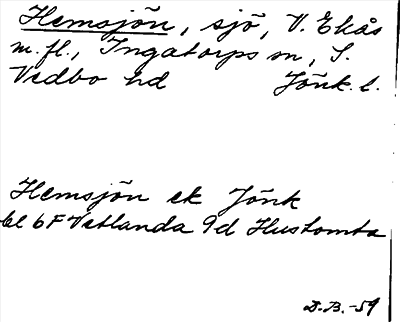 Hemsjön, sjö, V. Ekås
m. fl., Ingatorps sn, S.
Vedbo hd Jönk. l.
Hemsjön ek Jönk
bl 6F Vetlanda 9d Hustomta
D.B.-59